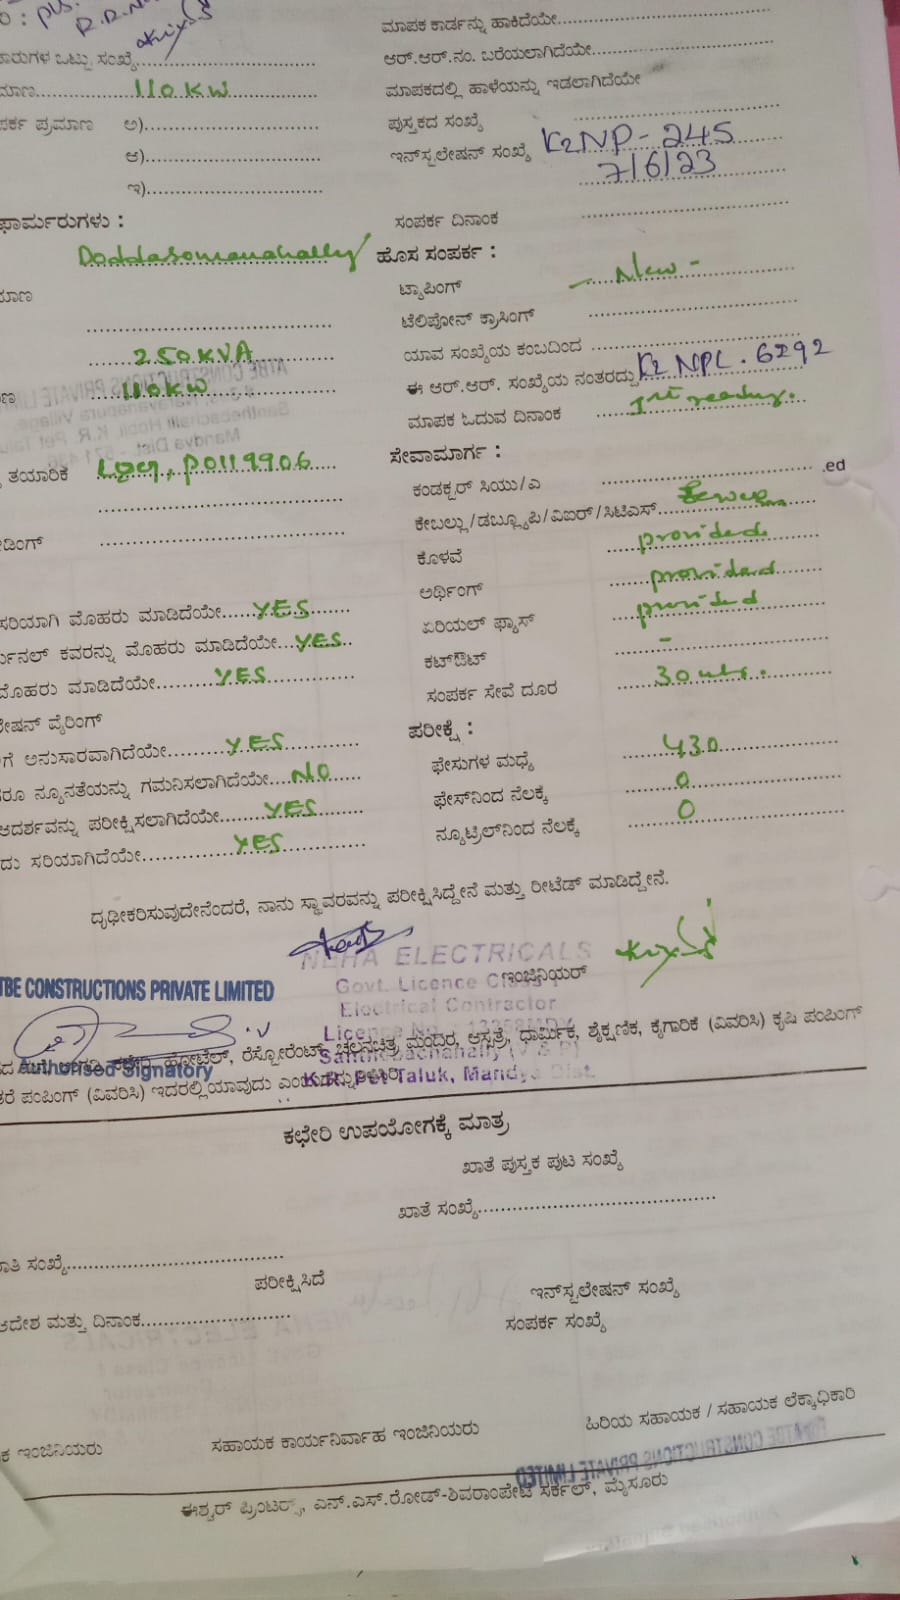 R.R.No
ಮಾಪಕ ಕಾರ್ಡನ್ನು ಹಾಕಿದೆಯೇ
ಒಟ್ಟು ಸಂಖ್ಯೆ
ಆರ್.ಆರ್.ನಂ. ಬರೆಯಲಾಗಿದೆಯೇ
110 KW
ಮಾಪಕದಲ್ಲಿ ಹಾಳೆಯನ್ನು ಇಡಲಾಗಿದೆಯೇ
ಪ್ರಮಾಣ ಅ)
ಪುಸ್ತಕದ ಸಂಖ್ಯೆ
ಆ)
ಇನ್‌ಸ್ಟಲೇಷನ್ ಸಂಖ್ಯೆ K2NP - 245
7/6/23
ಇ)
ಸಂಪರ್ಕ ದಿನಾಂಕ
ಫಾರ್ಮರುಗಳು :
Doddasomanahally
ಹೊಸ ಸಂಪರ್ಕ :
ಟ್ಯಾಪಿಂಗ್ - New -
ಟೆಲಿಪೋನ್ ಕ್ರಾಸಿಂಗ್
250 KVA
ಯಾವ ಸಂಖ್ಯೆಯ ಕಂಬದಿಂದ
110 KW
ಈ ಆರ್.ಆರ್. ಸಂಖ್ಯೆಯ ನಂತರದ್ದು K2 NPL . 6292
ಮಾಪಕ ಓದುವ ದಿನಾಂಕ 1st reading.
ತಯಾರಿಕೆ P0119906
ಸೇವಾಮಾರ್ಗ :
ಕಂಡಕ್ಟರ್ ಸಿಯು/ಎ
.ed
ಕೇಬಲ್ಲು/ಡಬ್ಲ್ಯೂಪಿ/ವಿಐಆರ್/ಸಿಟಿಎಸ್
ಕೊಳವೆ provided
ಅರ್ಥಿಂಗ್ provided
ಸರಿಯಾಗಿ ಮೊಹರು ಮಾಡಿದೆಯೇ YES
ಏರಿಯಲ್ ಫ್ಯೂಸ್ provided
ಕವರನ್ನು ಮೊಹರು ಮಾಡಿದೆಯೇ YES
ಕಟ್‌ಔಟ್ -
ಮೊಹರು ಮಾಡಿದೆಯೇ YES
ಸಂಪರ್ಕ ಸೇವೆ ದೂರ 30 mts.
ವೈರಿಂಗ್
ಪರೀಕ್ಷೆ :
ಅನುಸಾರವಾಗಿದೆಯೇ YES
ಫೇಸುಗಳ ಮಧ್ಯೆ 430
ನ್ಯೂನತೆಯನ್ನು ಗಮನಿಸಲಾಗಿದೆಯೇ NO
ಫೇಸ್‌ನಿಂದ ನೆಲಕ್ಕೆ 0
ಆದರ್ಶವನ್ನು ಪರೀಕ್ಷಿಸಲಾಗಿದೆಯೇ YES
ನ್ಯೂಟ್ರಿಲ್‌ನಿಂದ ನೆಲಕ್ಕೆ 0
ಸರಿಯಾಗಿದೆಯೇ YES
ದೃಢೀಕರಿಸುವುದೇನೆಂದರೆ, ನಾನು ಸ್ಥಾವರವನ್ನು ಪರೀಕ್ಷಿಸಿದ್ದೇನೆ ಮತ್ತು ರೀಟೆಡ್ ಮಾಡಿದ್ದೇನೆ.
NEHA ELECTRICALS
CONSTRUCTIONS PRIVATE LIMITED
Govt. Licence Class
ಇಂಜಿನಿಯರ್
Electrical Contractor
Licence No.
ಹೋಟೆಲ್, ರೆಸ್ಟೋರೆಂಟ್, ಚಲನಚಿತ್ರ ಮಂದಿರ, ಆಸ್ಪತ್ರೆ, ಧಾರ್ಮಿಕ, ಶೈಕ್ಷಣಿಕ, ಕೈಗಾರಿಕೆ (ವಿವರಿಸಿ) ಕೃಷಿ ಪಂಪಿಂಗ್
Authorised Signatory
ಪಂಪಿಂಗ್ (ವಿವರಿಸಿ) ಇದರಲ್ಲಿ ಯಾವುದು
K.R. Pet Taluk, Mandya Dist.
ಕಛೇರಿ ಉಪಯೋಗಕ್ಕೆ ಮಾತ್ರ
ಖಾತೆ ಪುಸ್ತಕ ಪುಟ ಸಂಖ್ಯೆ
ಖಾತೆ ಸಂಖ್ಯೆ
ಸಂಖ್ಯೆ
ಪರೀಕ್ಷಿಸಿದೆ
ಇನ್‌ಸ್ಟಲೇಷನ್ ಸಂಖ್ಯೆ
ಆದೇಶ ಮತ್ತು ದಿನಾಂಕ
ಸಂಪರ್ಕ ಸಂಖ್ಯೆ
ಇಂಜಿನಿಯರು
ಸಹಾಯಕ ಕಾರ್ಯನಿರ್ವಾಹ ಇಂಜಿನಿಯರು
ಹಿರಿಯ ಸಹಾಯಕ / ಸಹಾಯಕ ಲೆಕ್ಕಾಧಿಕಾರಿ
ಈಶ್ವರ್ ಪ್ರಿಂಟರ್ಸ್, ಎನ್.ಎಸ್.ರೋಡ್-ಶಿವರಾಂಪೇಟೆ ಸರ್ಕಲ್, ಮೈಸೂರು